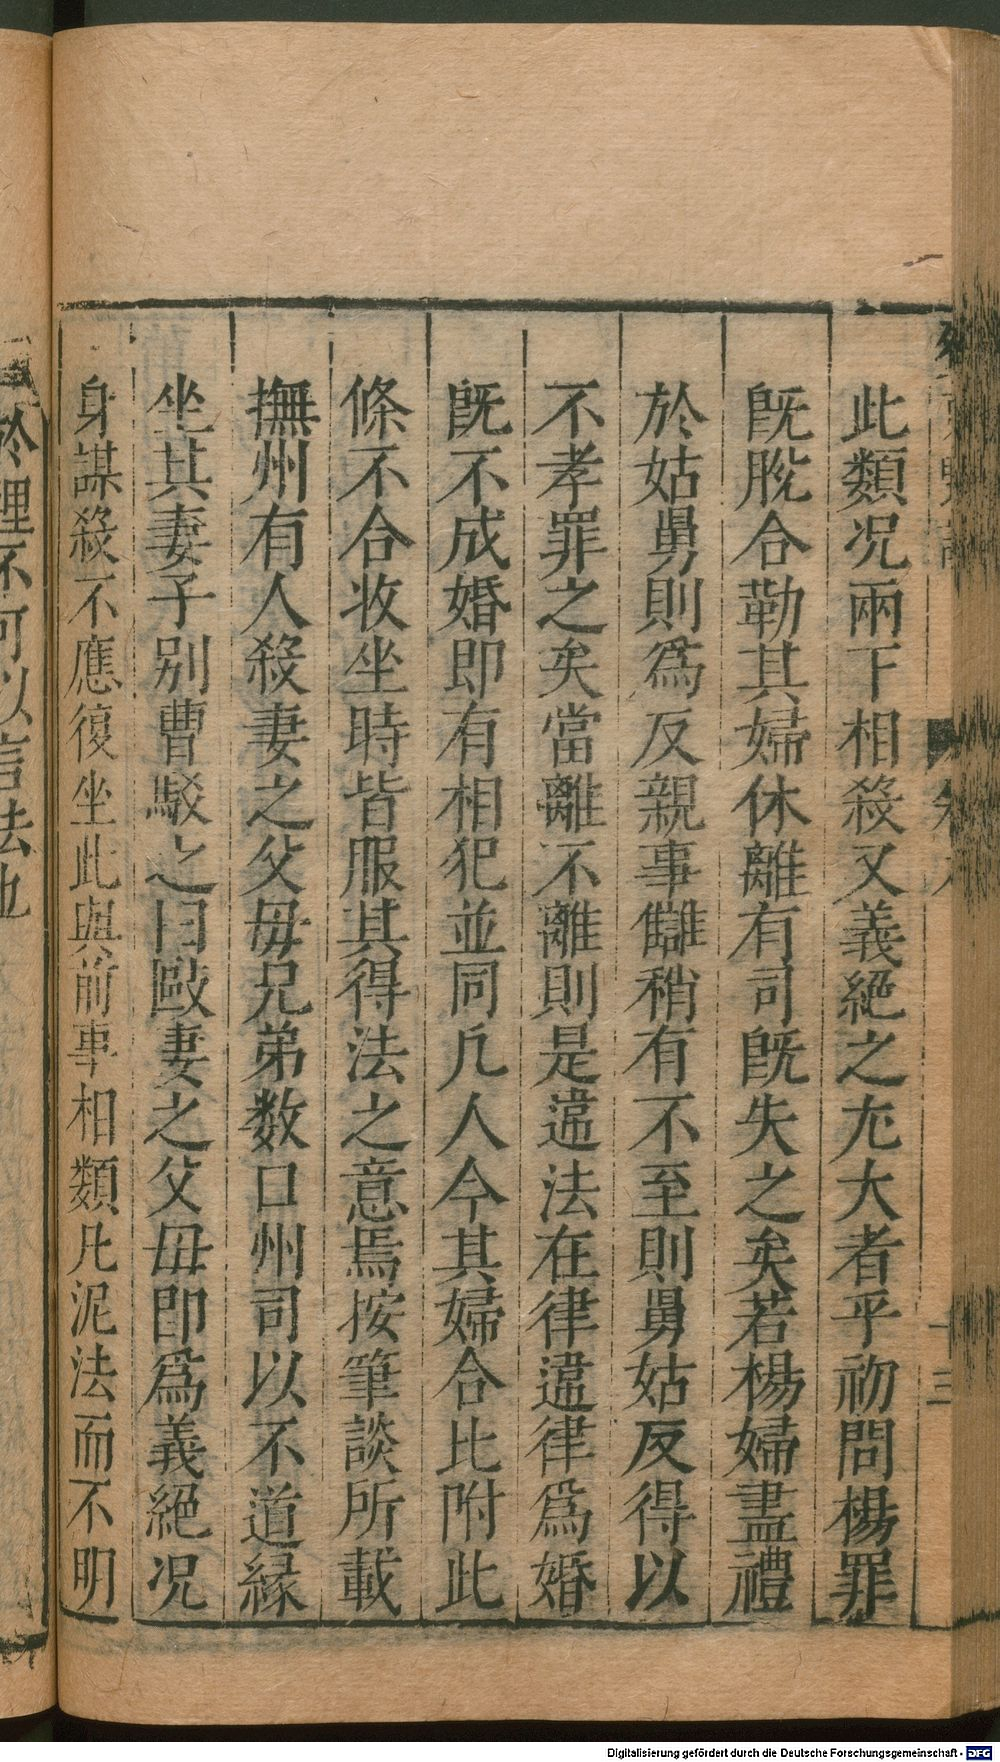 此類况兩下相殺又義絕之尤大者乎初問楊罪
旣脫合勒其婦休離有司旣失之矣若楊婦盡禮
於姑舅則爲反親事讎稍有不至則舅姑反得以
不孝罪之矣當離不離則是違法在律違律爲婚
旣不成婚即有相犯並同凡人今其婦合比附此
條不合收坐時皆服其得法之意焉按筆談所載
撫州有人殺妻之父毋兄弟数口州司以不道緣
坐其妻子别曹駁之曰毆妻之父毋即爲義絕况
身謀殺不應復坐此與前事相類凡泥法而不明
於理不可以言法也
Digitalisierung gefördert durch die Deutsche Forschungsgemeinschaft - DFG